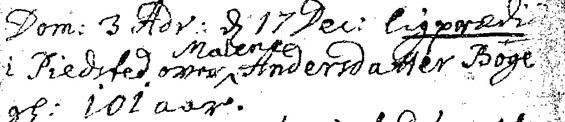 Dom: 3 Adv: d 17 Dec: ligprædi
i Piedsted over Malene Andersdatter Böge
gl: 101 aar.